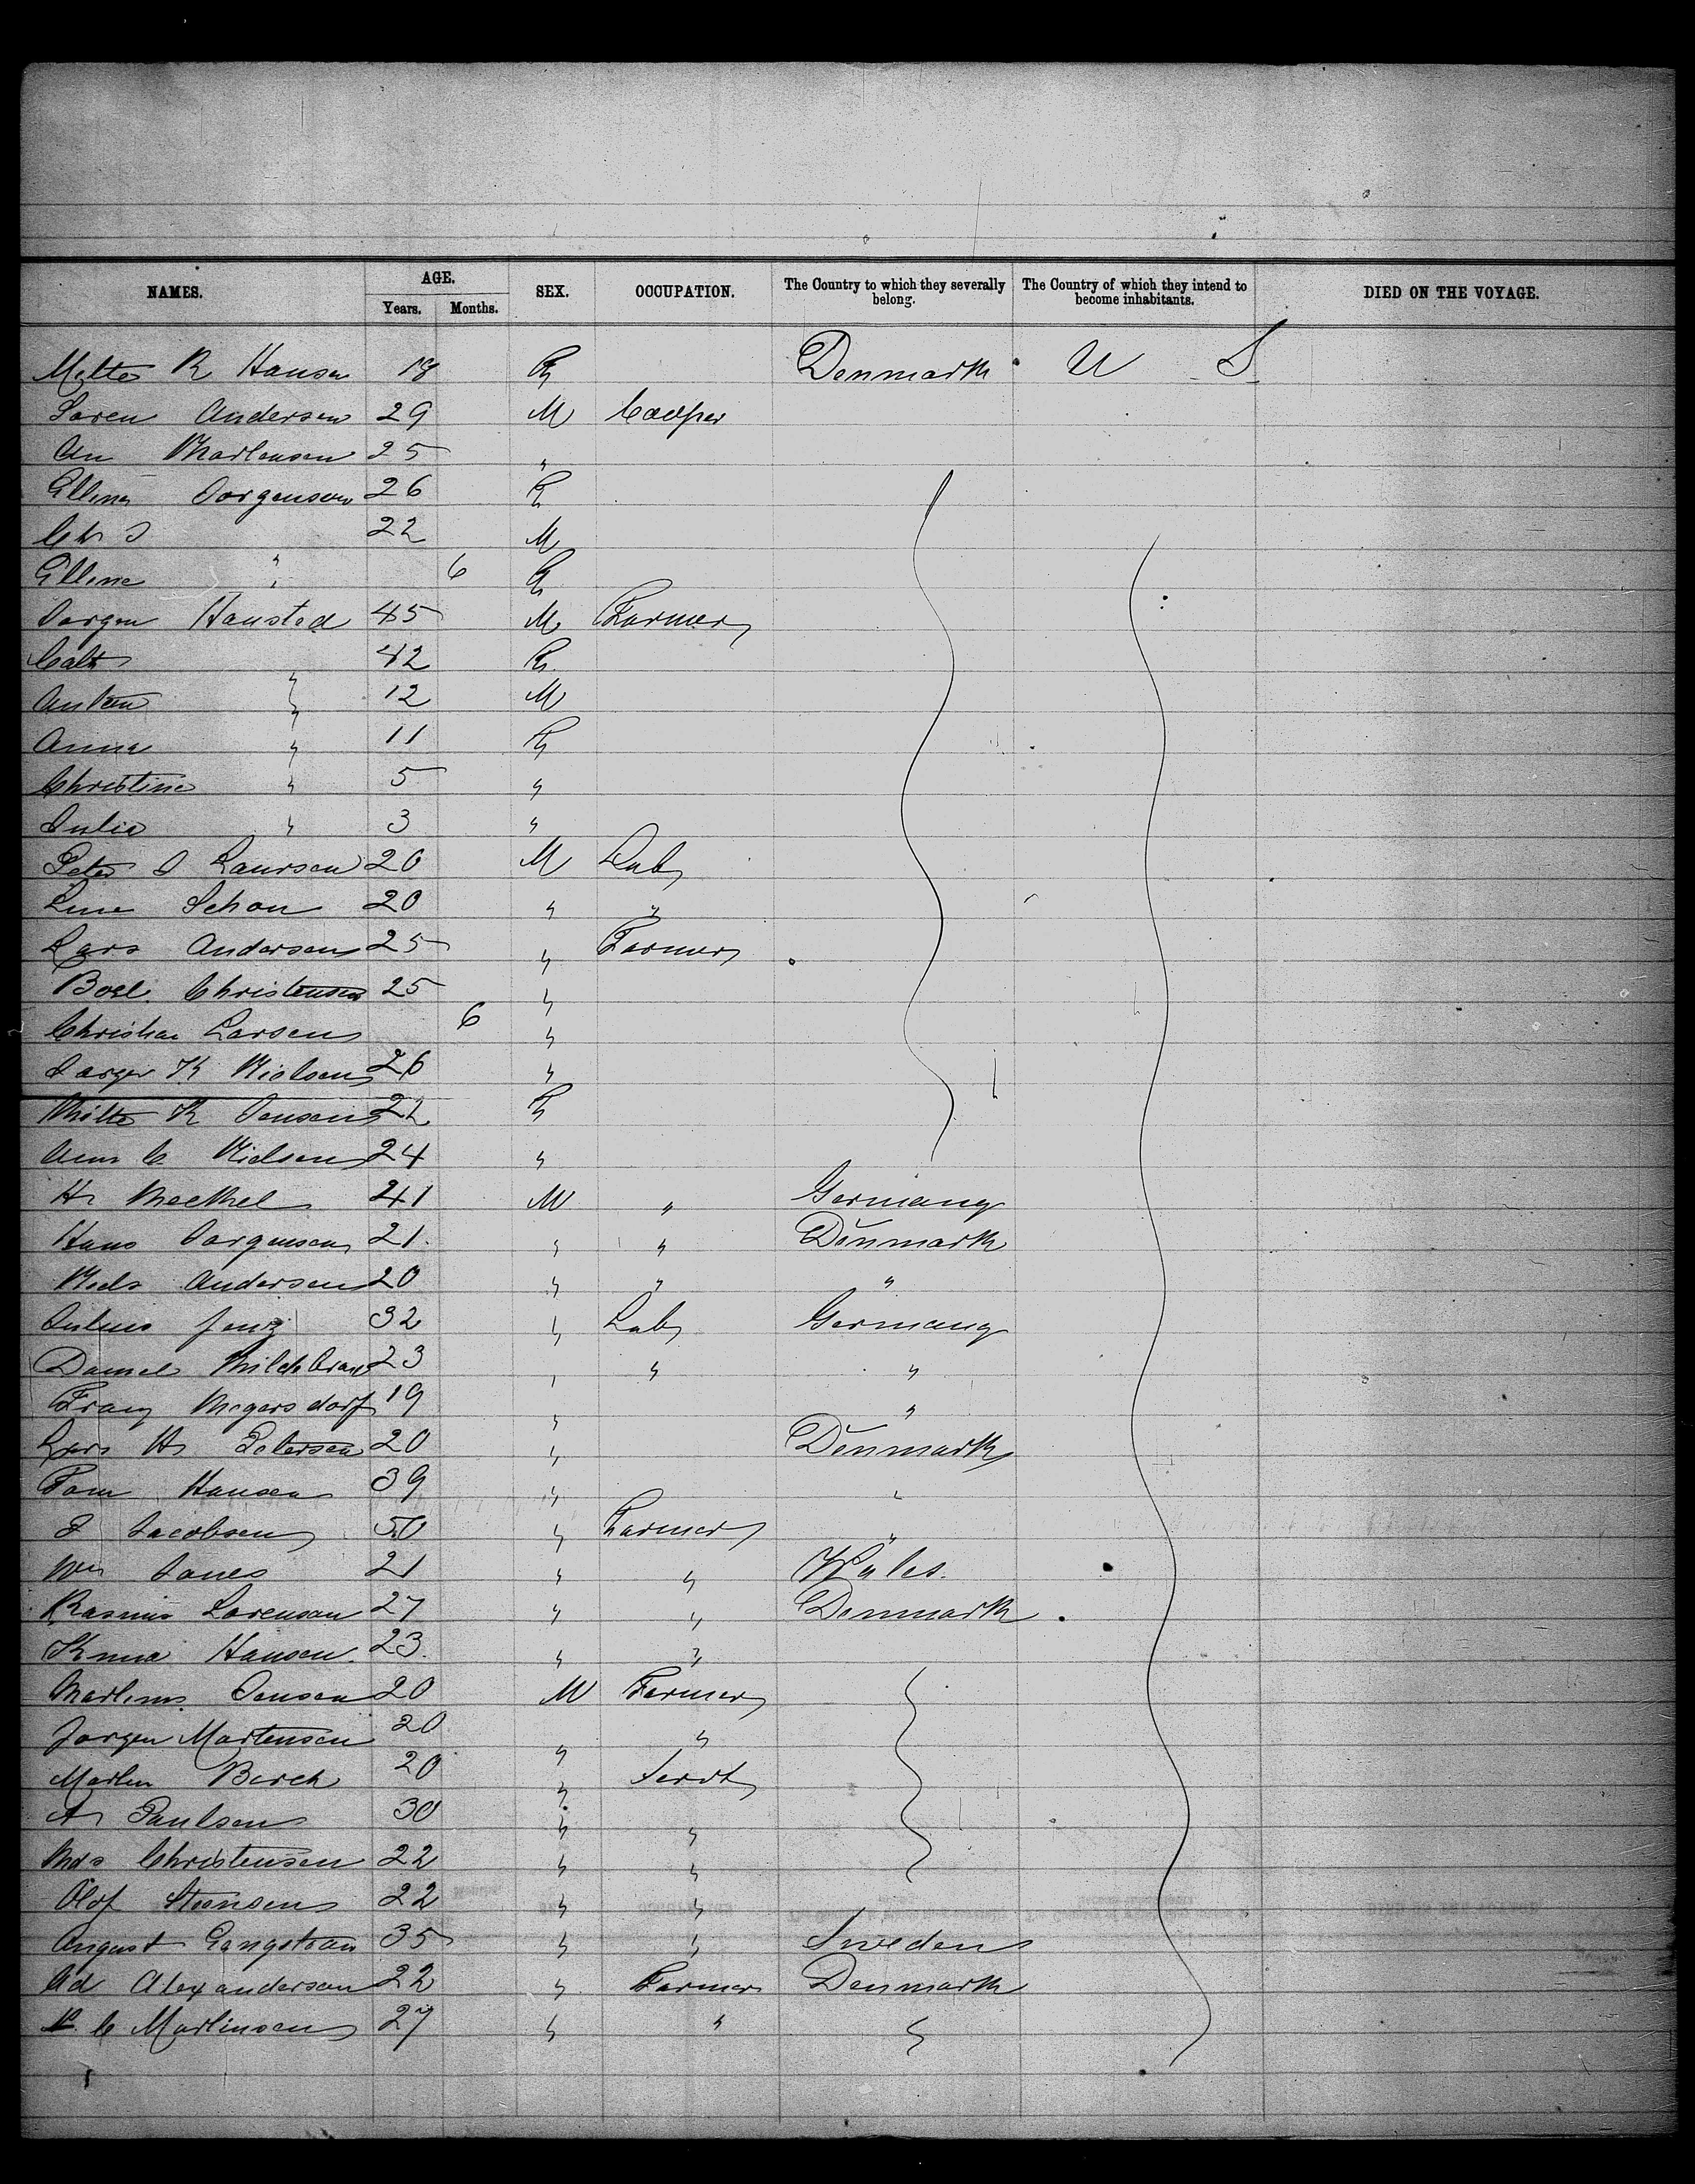 NAMES. AGE. SEX. OCCUPATION. The Country to which they severally belong. The Country of which they intend to become inhabitants. DIED ON THE VOYAGE.
Years. Months.
R Hansen 18 Denmark U S
Soren Andersen 29 M Cooper
An 25 "
Jorgensen 26
22 M
Elline " 6
Jorgen Hansted 45 M Farmer
42
Anton " 12 M
Anna " 11
Christine " 5 "
Julie " 3 "
Peter J Laursen 20 M Lab
Schou 20 " "
Lars Andersen 25 " Farmer
Boel Christensen 25 "
Christian Larsen 6 "
K Nielsen 26 "
K Jensen 22
C Nielsen 24 "
41 M " Germany
Hans Jorgensen 21 " " Denmark
Niels Andersen 20 " " "
Julius 32 " Lab Germany
Daniel 23 " " "
Franz 19 " "
Lars Hs Petersen 20 " Denmark
Hansen 39 " "
Jacobsen 50 " Farmer "
Wm Jones 21 " " Wales
Rasmus Lorensen 27 " " Denmark
Hansen 23 " "
Jensen 20 M Farmer
Jorgen Martensen 20 " "
Martin Birch 20 " Servt
Paulsen 30 " "
Mds Christensen 22 " "
Olof Steensen 22 " "
August 35 " " Sweden
Ad Alexanderson 22 " Farmer Denmark
C Martinsen 27 " " "